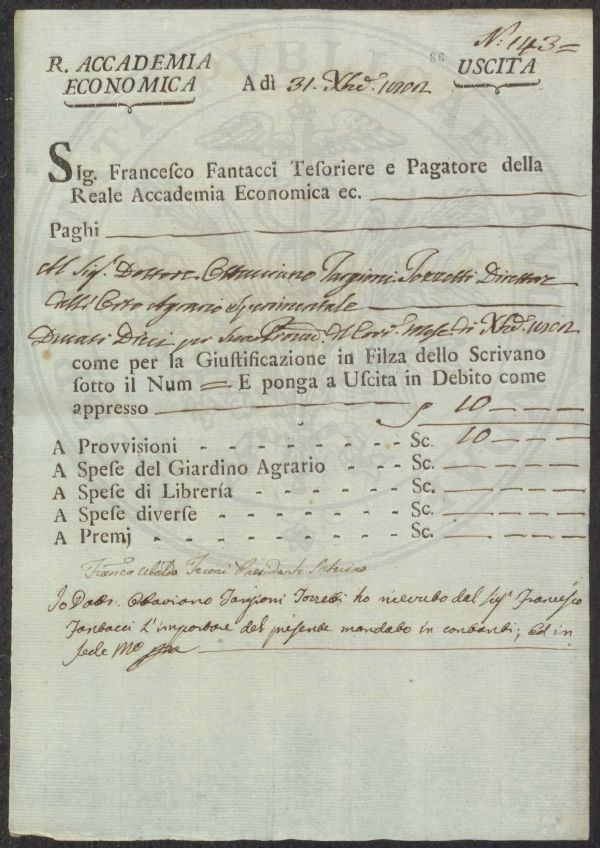 N: 143=
R. ACCADEMIA
ECONOMICA
A dì 31. Xbre.
86
USCITA
SIg. Francesco Fantacci Teſoriere e Pagatore della
Reale Accademia Economica ec.
Paghi
Al Sigr. Dottore Ottaviano Targioni Tozzetti Direttor
dell'Orto Agrario Sperimentale
Ducati Dieci per Sua Provvne. del Corre. mese di Xbre.
come per la Giuſtificazione in Filza dello Scrivano
ſotto il Num = E ponga a Uſcita in Debito come
appreſſo 10 — — —
A Provviſioni - - - - - - - Sc. 10 — — —
A Speſe del Giardino Agrario - - - Sc. — — — —
A Speſe di Librería - - - - - - Sc. — — — —
A Speſe diverſe - - - - - - - Sc. — — — —
A Premj - - - - - - - - - Sc. — — — —
Franco Ubaldo Feroni Presidente Interino
Io Dottr. Ottaviano Targioni Tozzetti ho ricevuto dal Sigr. Francesco
Fantacci l'importare del presente mandato in contanti; ed in
fede Mo ppa